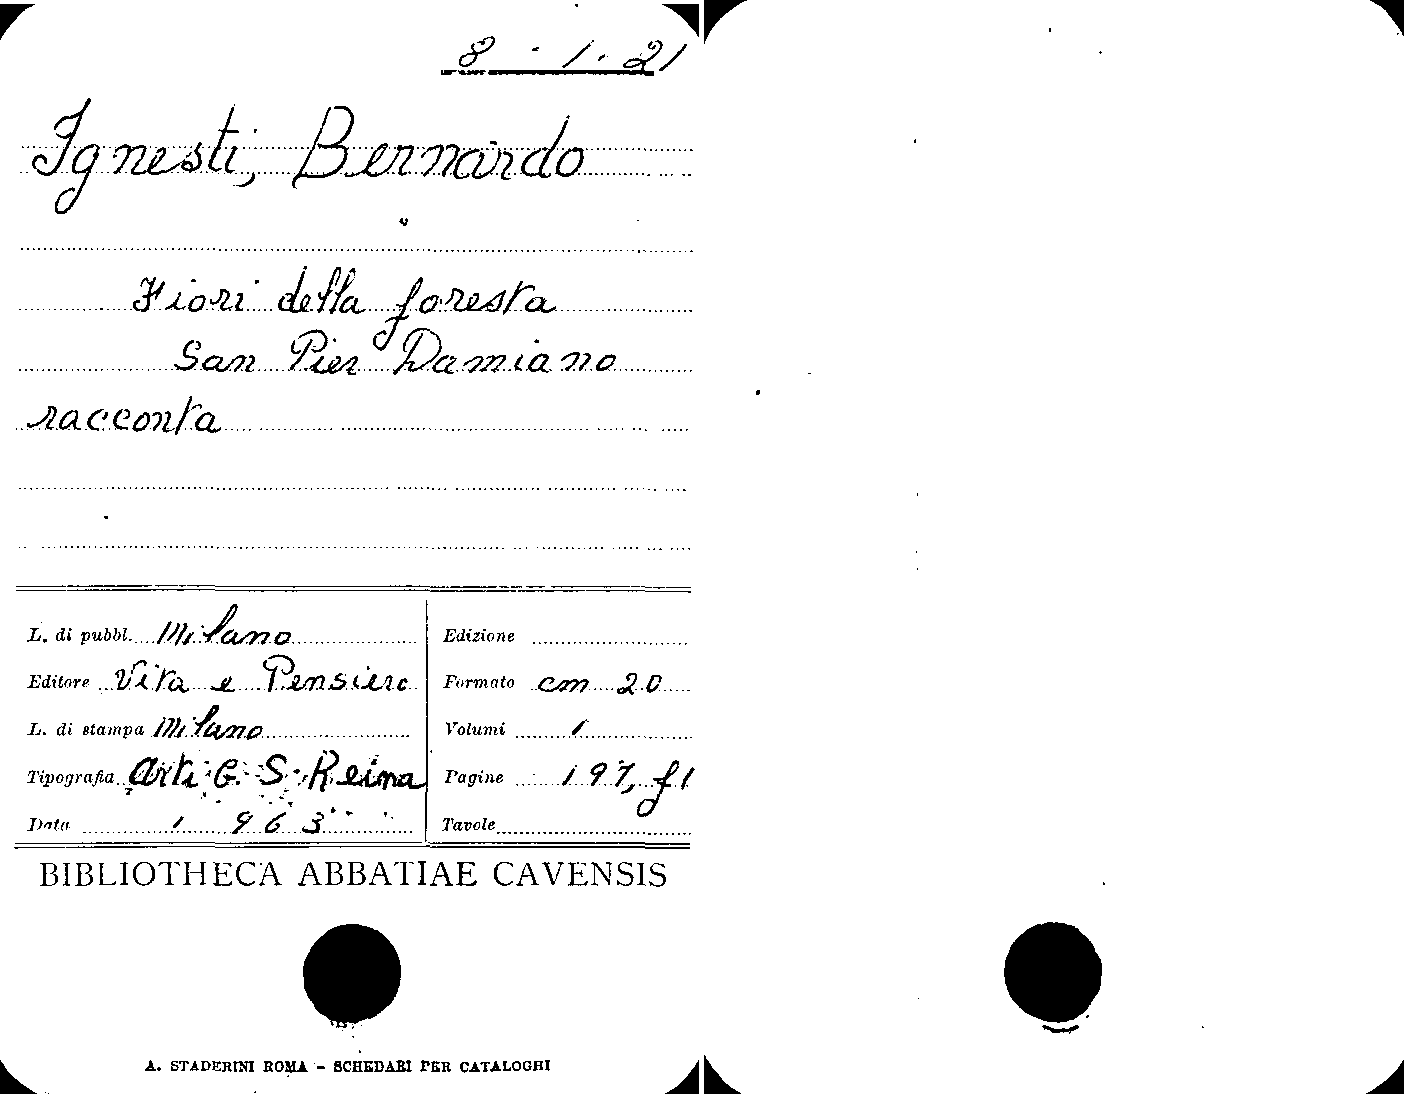 8 - 1. 21
Ignesti, Bernardo
Fiori della foresta
San Pier Damiano
racconta
L. di pubbl. Milano
Editore Vita e Pensiero
L. di stampa Milano
Tipografia Arti G. S. Reina
Data 1963
Edizione
Formato cm 20
Volumi 1
Pagine 197, f1
Tavole
BIBLIOTHECA ABBATIAE CAVENSIS
A. STADERINI ROMA - SCHEDARI PER CATALOGHI